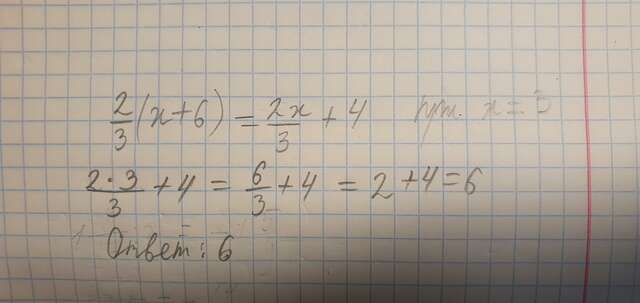 2/3 (x+6) = 2x/3 + 4 при x=3
2·3/3 + 4 = 6/3 + 4 = 2 + 4 = 6
Ответ: 6